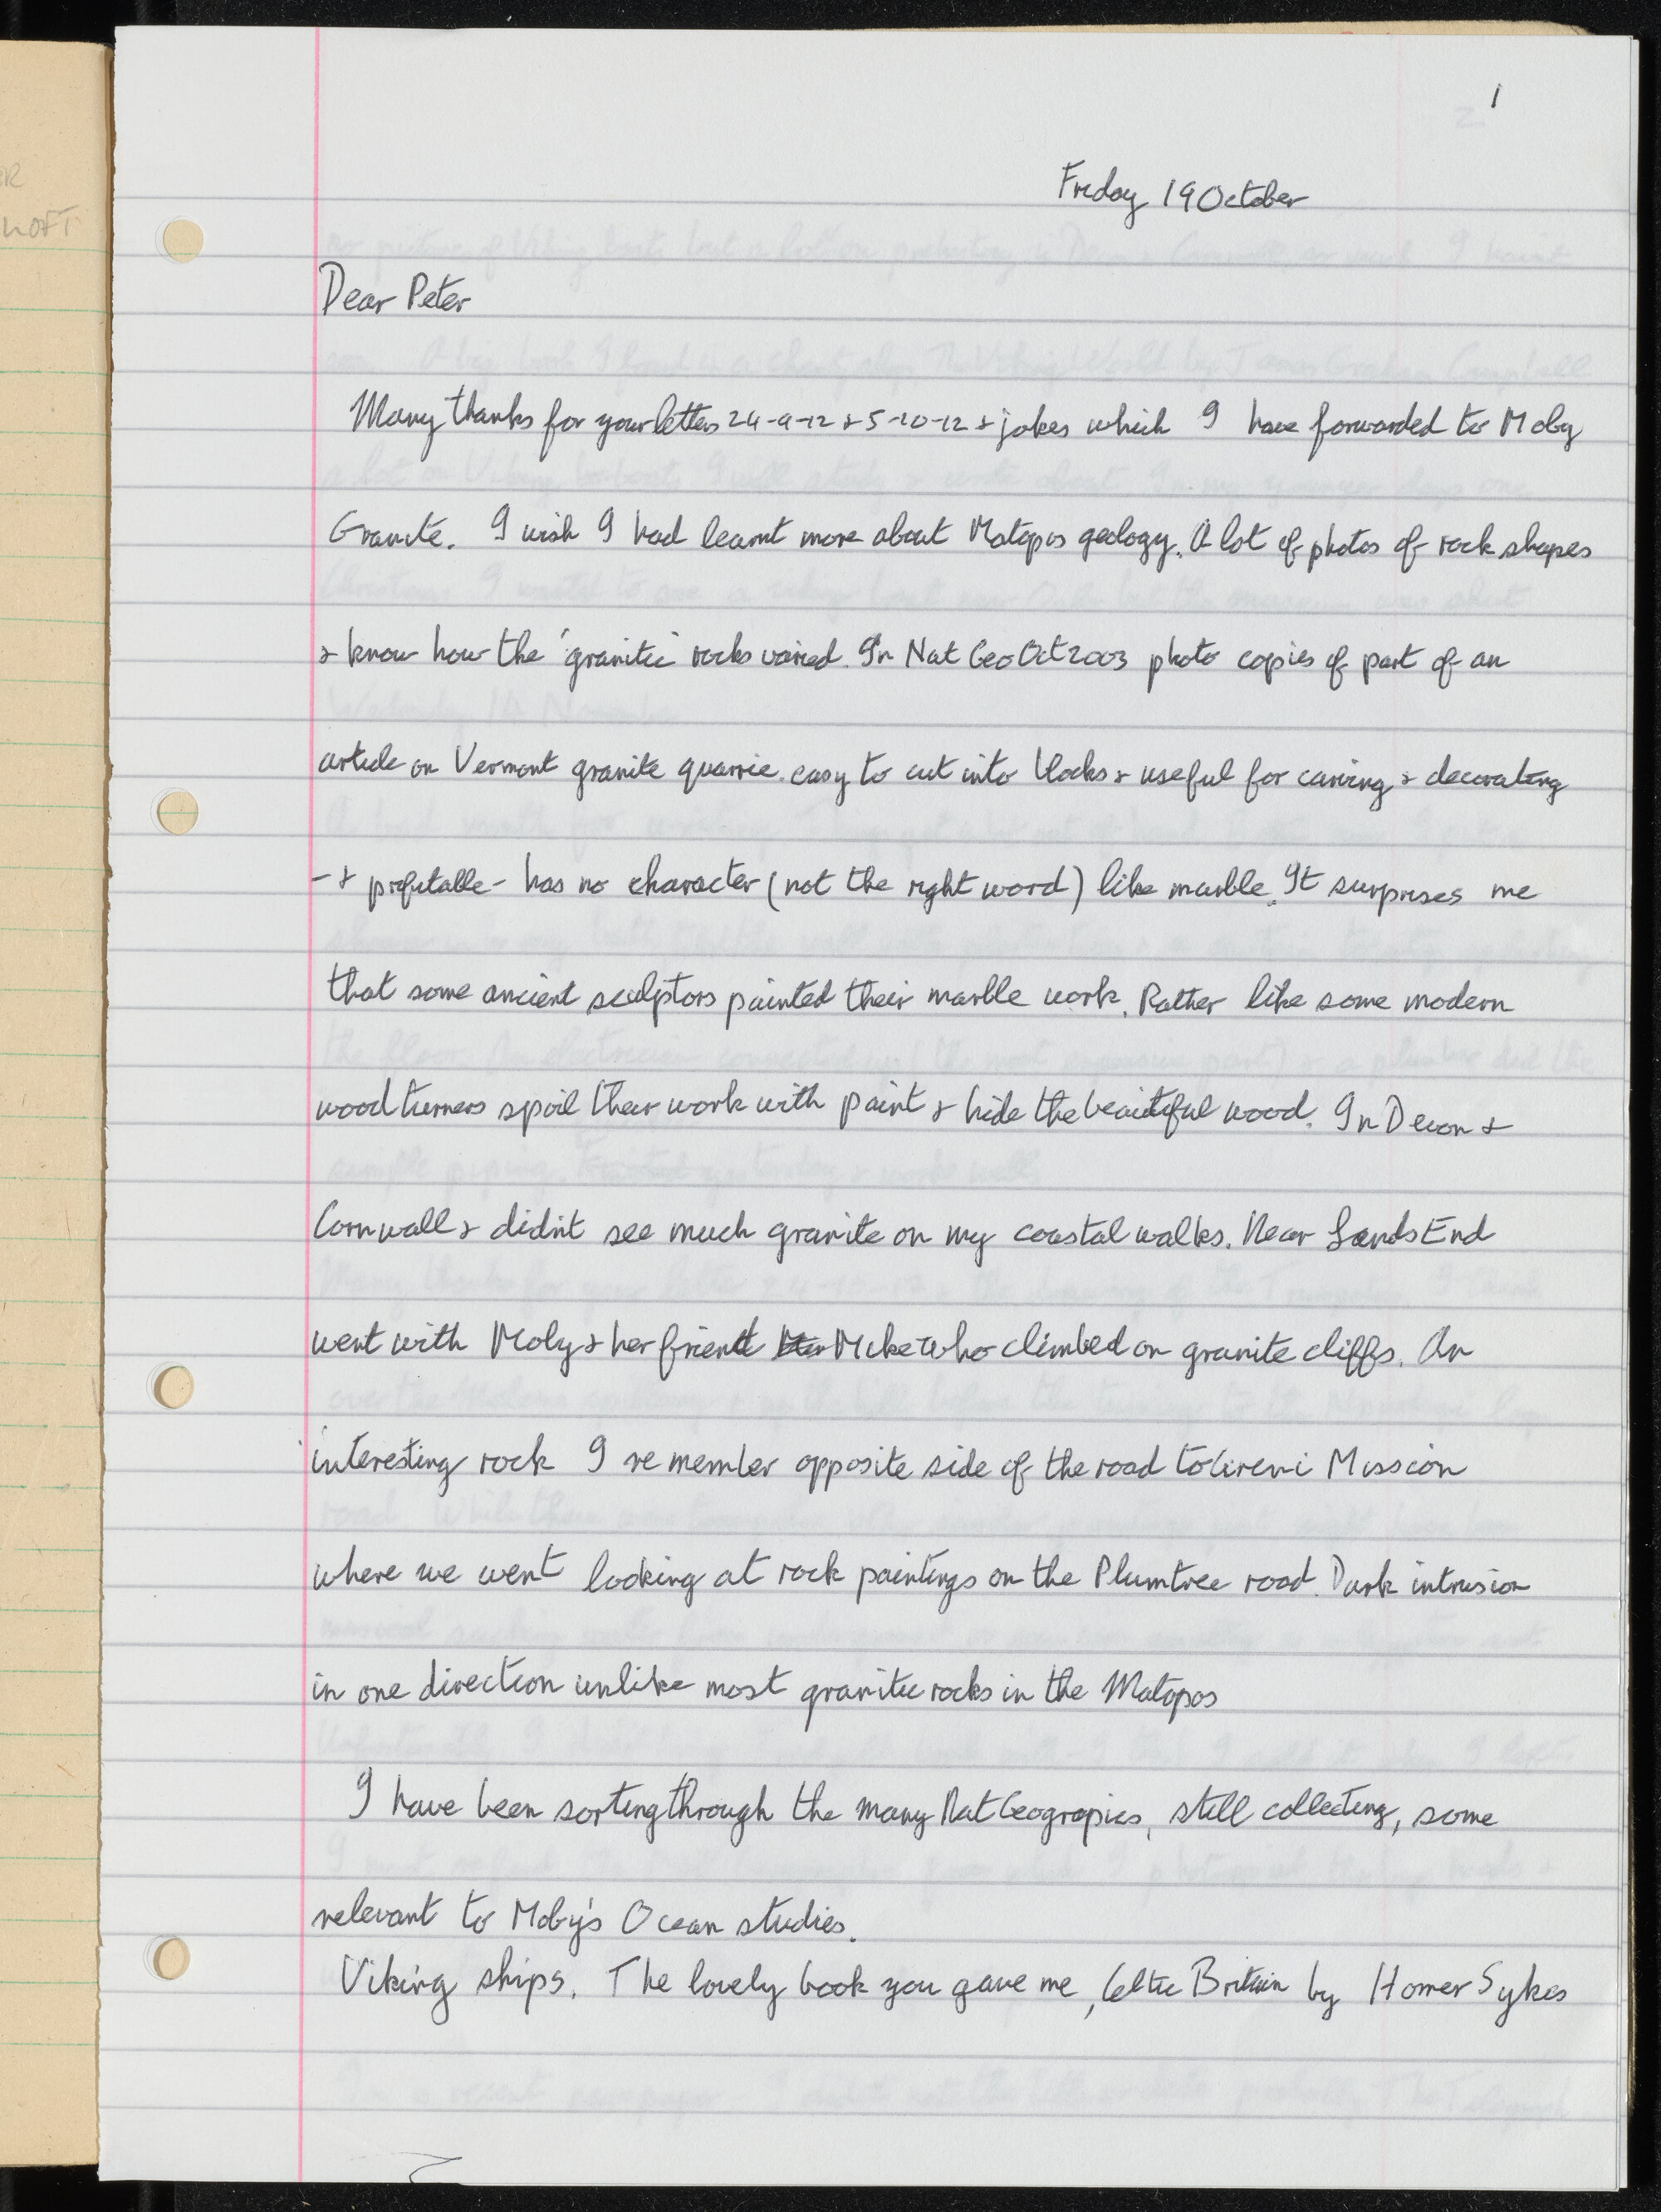 1
Friday 19 October
Dear Peter
Many thanks for your letters 24-9-12 & 5-10-12 & jokes which I have forwarded to Moby
Granite. I wish I had learnt more about Matopos geology. A lot of photos of rock shapes
& know how the 'granitic' rocks varied. In Nat Geo Oct 2003 photo copies of part of an
article on Vermont granite quarrie. easy to cut into blocks & useful for carving & decorating
- & profitable - has no character (not the right word) like marble. It surprises me
that some ancient sculptors painted their marble work. Rather like some modern
wood turners spoil their work with paint & hide the beautiful wood. In Devon &
Cornwall & didn't see much granite on my coastal walks. Near Lands End
went with Moby & her friend Mike who climbed on granite cliffs. An
interesting rock I remember opposite side of the road to Mission
where we went looking at rock paintings on the Plumtree road. Dark intrusion
in one direction unlike most granitic rocks in the Matopos
I have been sorting through the many Nat Geograpics, still collecting, some
relevant to Moby's Ocean studies.
Viking ships. The lovely book you gave me, Celtic Britain by Homer Sykes